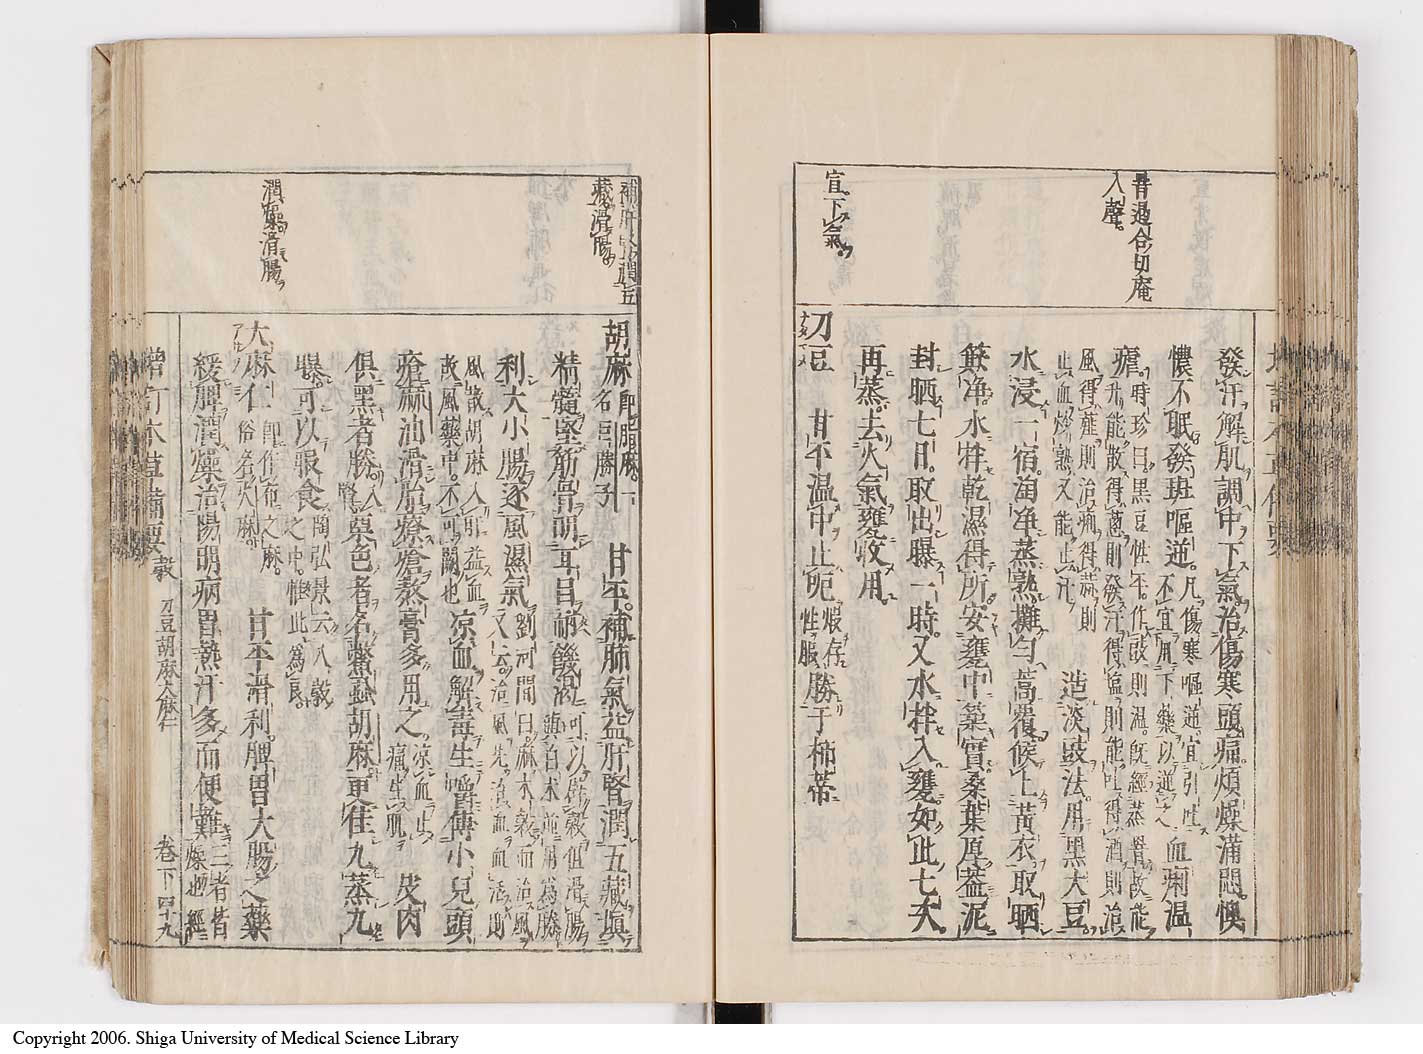 音過合切庵
入聲。
宣。下氣。
發汗解肌調中下氣。治傷寒頭痛煩燥滿悶。懊
憹不眠發斑嘔逆。凡傷寒嘔逆。宜引吐不宜用下藥以逆之血痢溫
瘧。時珍曰黑豆性平。作豉則溫。既經蒸罯故能升能散。得葱則發汗得塩則能吐得酒則治
風得薤則治痢得蒜則止血炒熟又能止汗 造淡豉法。用黑大豆
水浸一宿。淘淨蒸熟攤勻。蒿覆候上黃衣取晒
簸淨。水拌乾濕得所。安甕中築實桑葉厚蓋泥
封。晒七日。取出曝一時。又水拌入甕。如此七次。
再蒸。去火氣甕收用。
刀豆 甘平溫中止呃 煆存性服 勝于柿蒂
補肝腎潤五
藏滑腸
潤燥滑腸
胡麻 即脂麻。一名巨勝子 甘平。補肺氣益肝腎潤五藏塡
精髓堅筋骨明耳目耐饑渴 可以辟穀但滑腸與白朮並用為勝
利大小腸逐風濕氣 劉河間曰。麻木穀而治風又云。治風先治血血活則
風散胡麻入肝益血故風藥中。不可闕也 凉血解毒生嚼傅小兒頭
瘡麻油滑胎療瘡熬膏多用之 凉血止痛生肌 皮肉
俱黑者勝。入腎 栗色者名鱉蝨胡麻。更佳九蒸九
曝可以服食 陶弘景云八穀之中。惟此為良
大麻仁 即作布之麻。俗名火麻。 甘平滑利。脾胃大腸之藥
緩脾潤燥治陽明病胃熱汗多而便難 三者皆燥也
增訂本草備要 穀 刀豆胡麻大麻仁 卷下 四十九
Copyright 2006. Shiga University of Medical Science Library